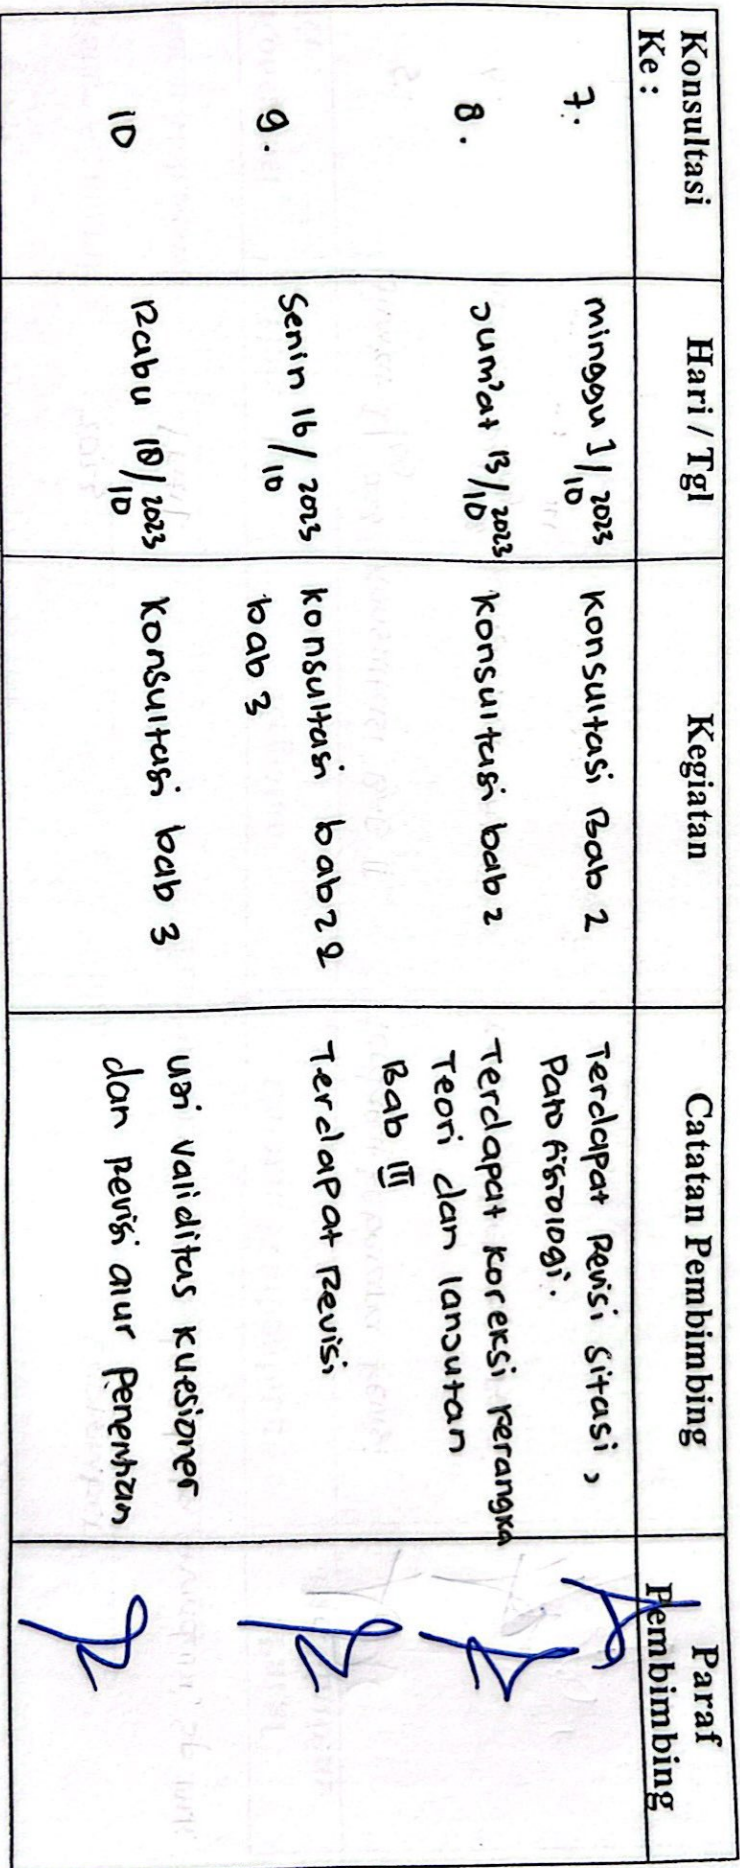 Konsultasi Ke : Hari / Tgl Kegiatan Catatan Pembimbing Paraf Pembimbing
7. minggu 1/10 2023 Konsultasi Bab 2 Terdapat Revisi sitasi,
Patofisiologi.
8. Jum'at 13/10 2023 Konsultasi bab 2 Terdapat koreksi kerangka
Teori dan lanjutan
Bab III
9. Senin 16/10 2023 konsultasi bab 2 & Terdapat Revisi
bab 3
10 Rabu 18/10 2023 Konsultasi bab 3 uji validitas kuesioner
dan revisi alur Penelitian